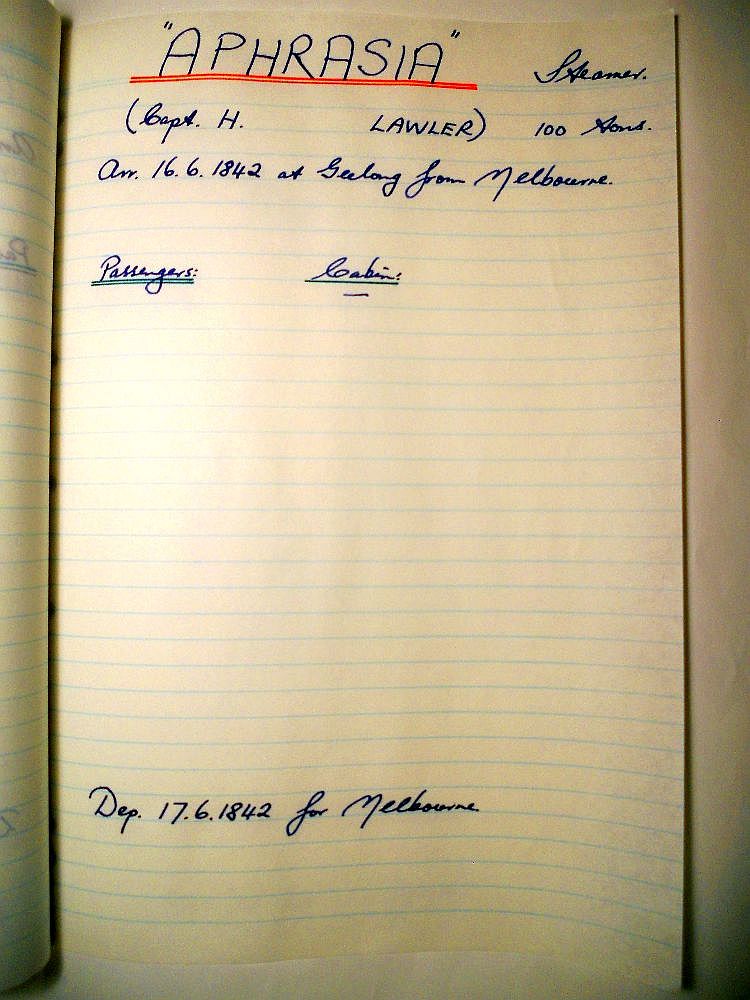 "APHRASIA" Steamer.
(Capt. H. LAWLER) 100 tons.
Arr. 16.6.1842 at Geelong from Melbourne.
Passengers: Cabin:
—
Dep. 17.6.1842 for Melbourne